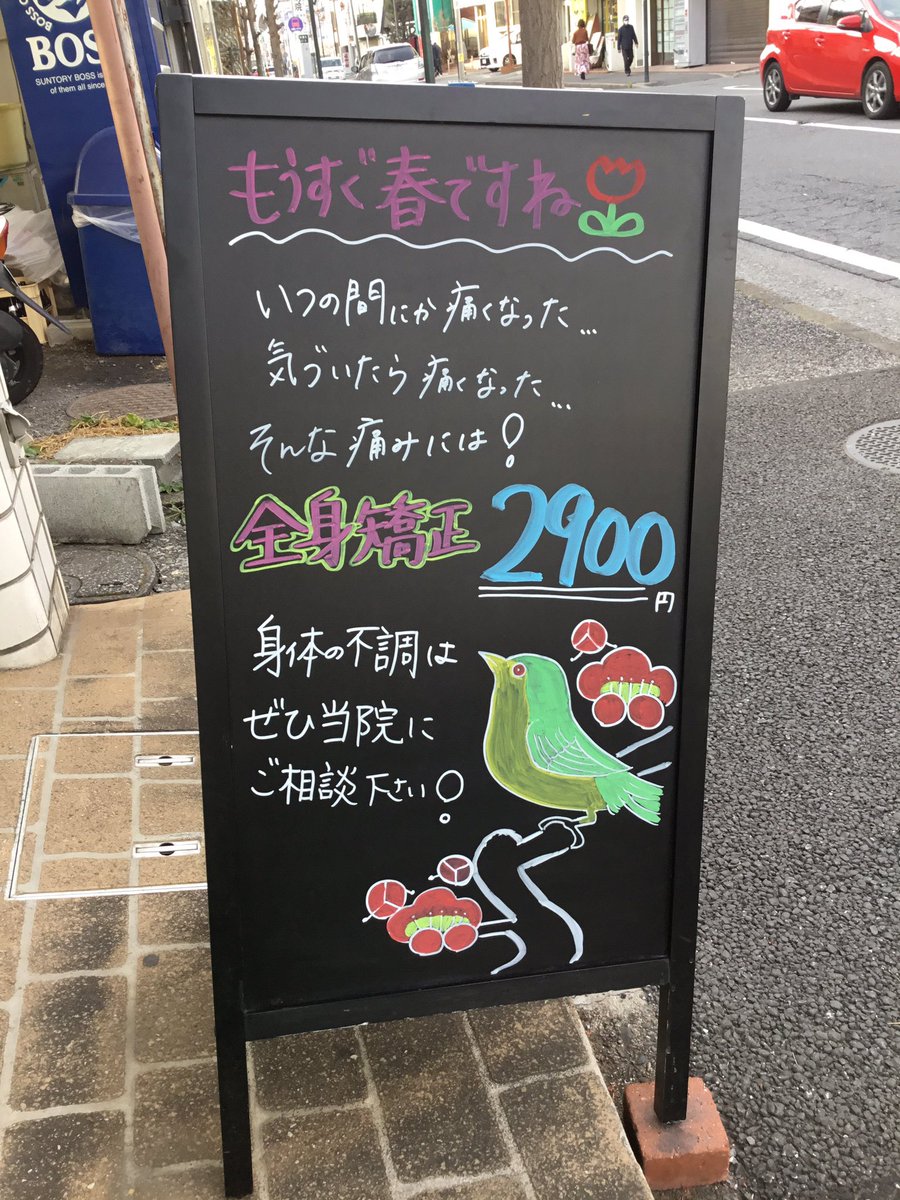 BOSS
SUNTORY BOSS is
of them all since
もうすぐ春ですね
いつの間にか痛くなった…
気づいたら痛くなった…
そんな痛みには!
全身矯正 2900円
身体の不調は
ぜひ当院に
ご相談下さい!